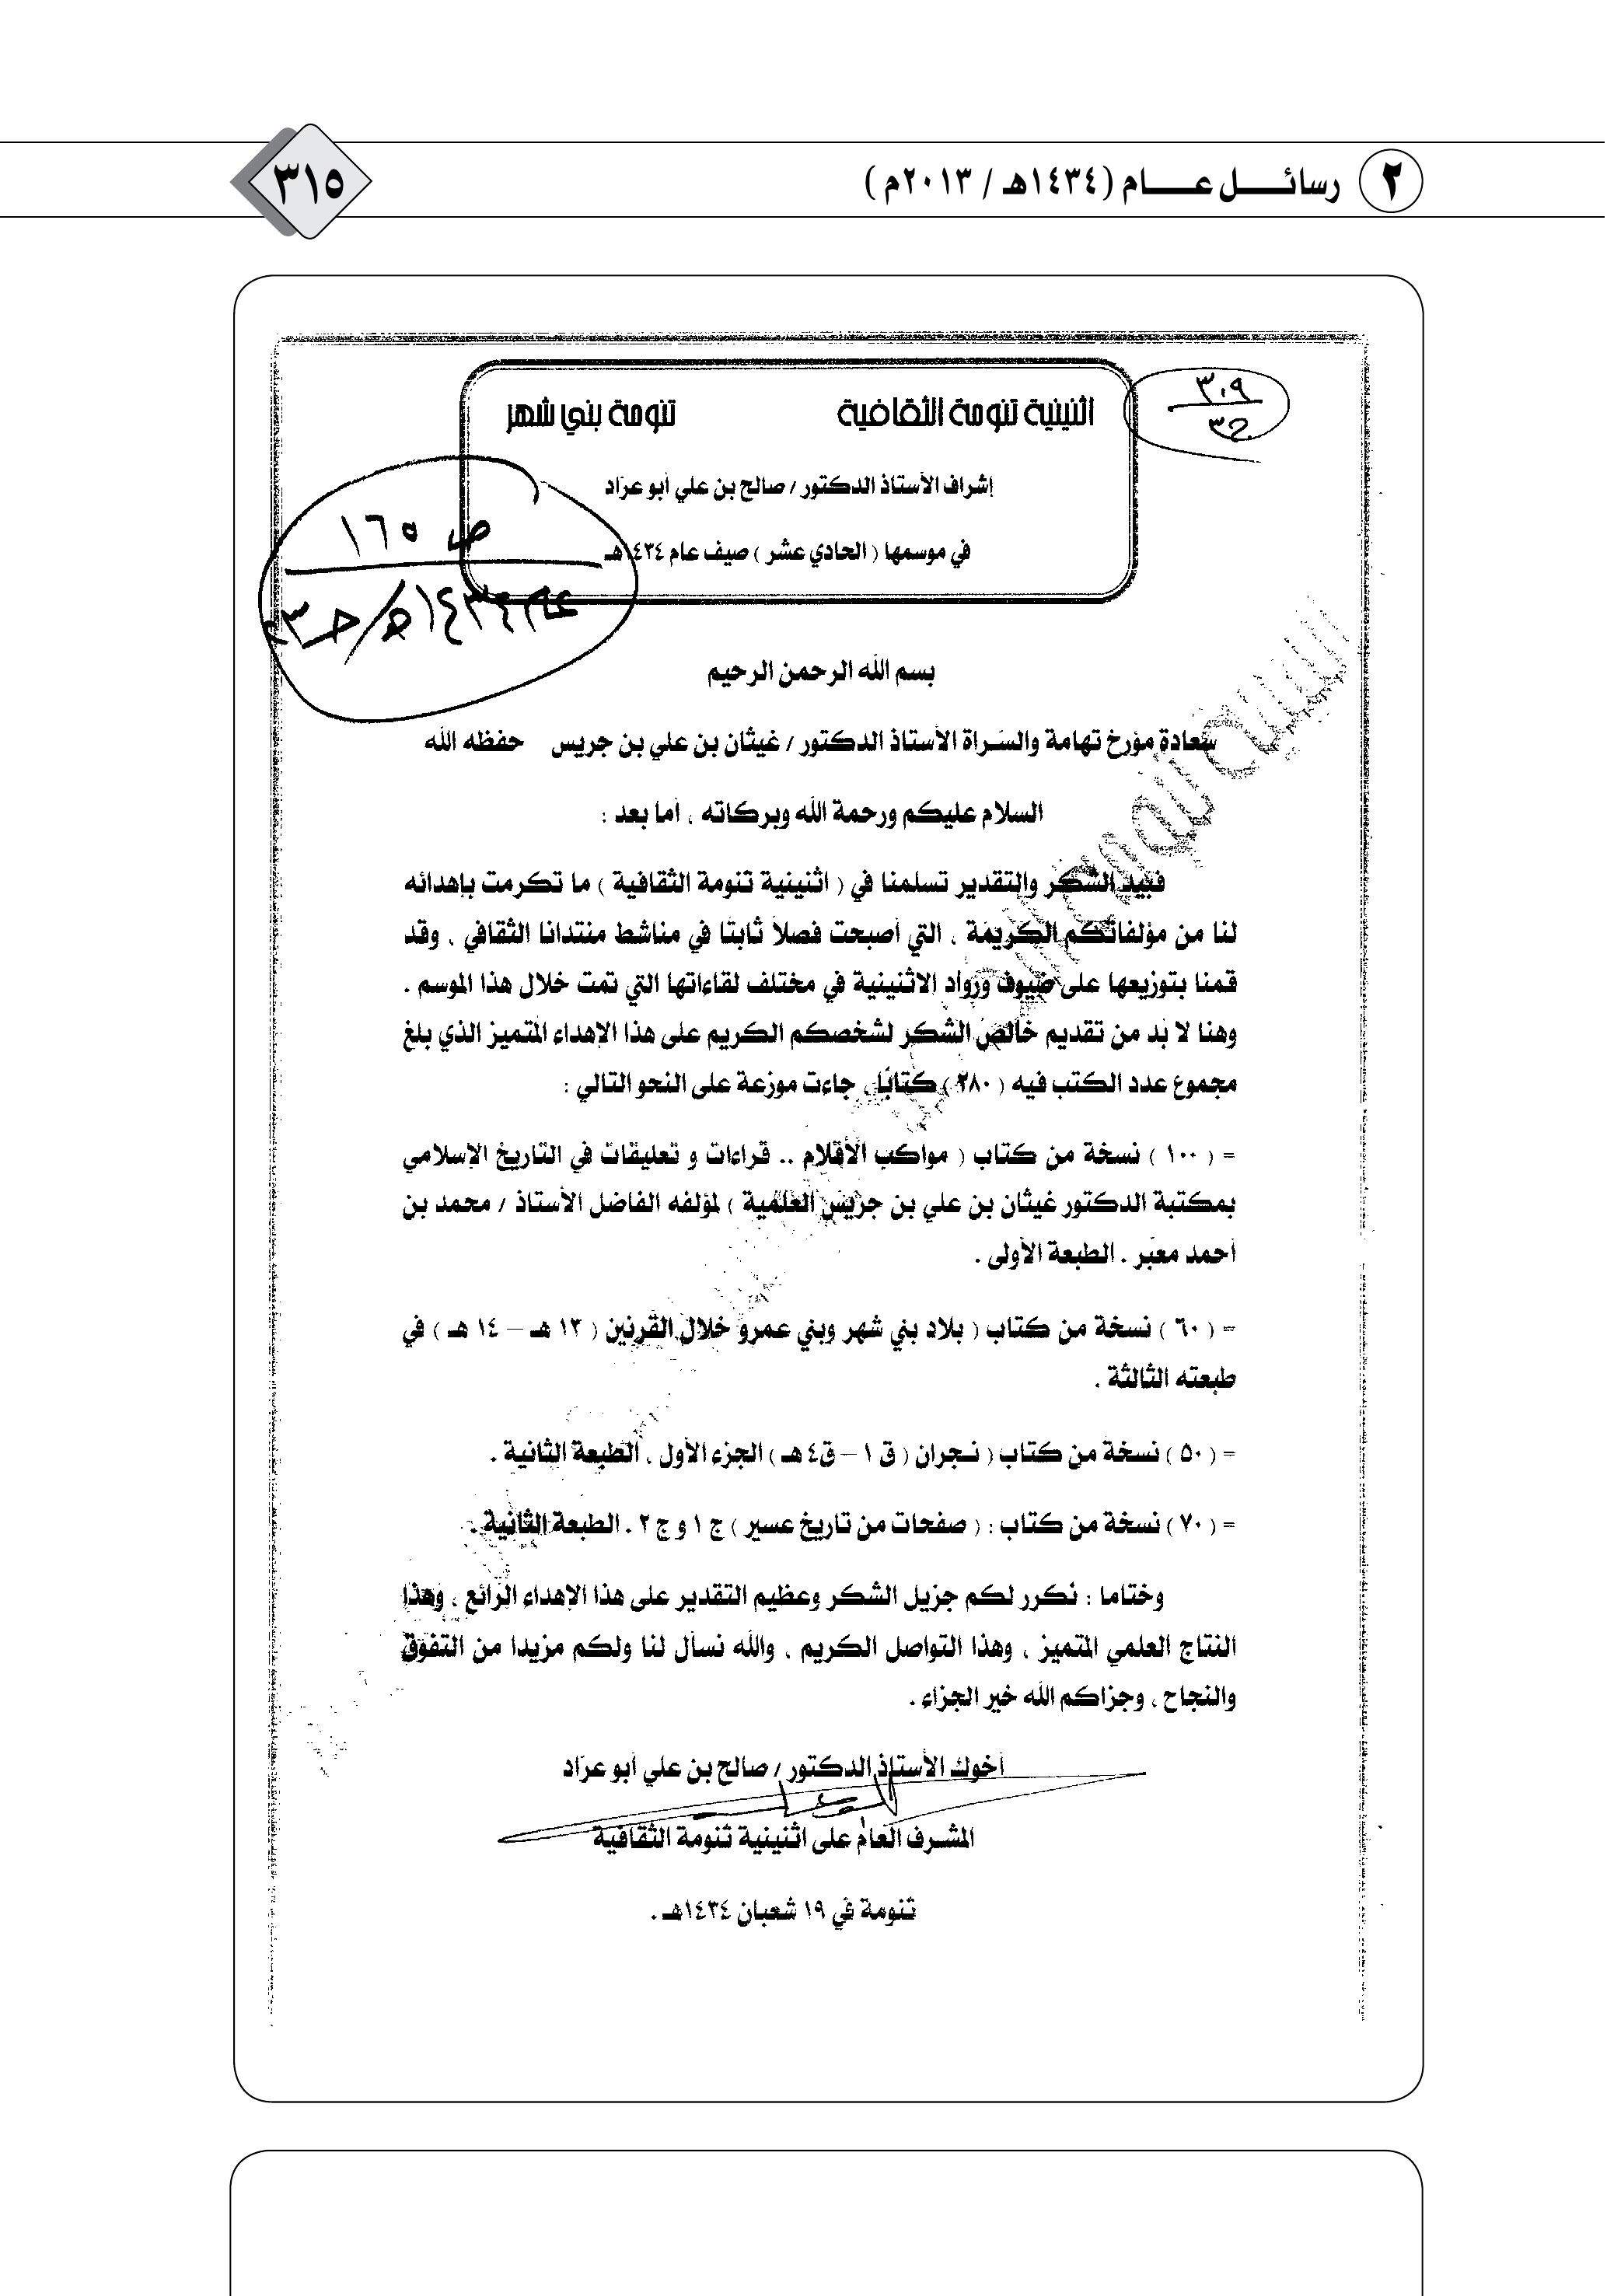 ٢ رسائـــل عـــــام (١٤٣٤هـ / ٢٠١٣م )
٣١٥
٣٠٩
ج٣
اثنينية تنومة الثقافية تنومة بني شهر
إشراف الأستاذ الدكتور / صالح بن علي أبو عرّاد
في موسمها ( الحادي عشر ) صيف عام ١٤٣٤هـ
ص ١٦٥
عام ١٤٣٤هـ / جـ٣
بسم الله الرحمن الرحيم
سعادة مؤرخ تهامة والسَراة الأستاذ الدكتور / غيثان بن علي بن جريس حفظه الله
السلام عليكم ورحمة الله وبركاته ، أما بعد :
فبيد الشكر والتقدير تسلمنا في ( اثنينية تنومة الثقافية ) ما تكرمت بإهدائه
لنا من مؤلفاتكم الكريمة ، التي أصبحت فصلاً ثابتًا في مناشط منتدانا الثقافي ، وقد
قمنا بتوزيعها على ضيوف ورُواد الاثنينية في مختلف لقاءاتها التي تمت خلال هذا الموسم .
وهنا لا بُد من تقديم خالص الشكر لشخصكم الكريم على هذا الإهداء المتميز الذي بلغ
مجموع عدد الكتب فيه ( ٢٨٠ ) كتابًا ، جاءت موزعة على النحو التالي :
= ( ١٠٠ ) نسخة من كتاب ( مواكب الأقلام .. قراءات و تعليقات في التاريخ الإسلامي
بمكتبة الدكتور غيثان بن علي بن جريس العلمية ) لمؤلفه الفاضل الأستاذ / محمد بن
أحمد معبّر . الطبعة الأولى .
= ( ٦٠ ) نسخة من كتاب ( بلاد بني شهر وبني عمرو خلال القرنين ( ١٣ هـ – ١٤ هـ ) في
طبعته الثالثة .
= ( ٥٠ ) نسخة من كتاب ( نـجران ( ق ١ – ق٤ هـ ) الجزء الأول ، الطبعة الثانية .
= ( ٧٠ ) نسخة من كتاب : ( صفحات من تاريخ عسير ) ج ١ و ج ٢ . الطبعة الثانية .
وختاما : نُكرر لكم جزيل الشكر وعظيم التقدير على هذا الإهداء الرائع ، وهذا
النتاج العلمي المتميز ، وهذا التواصل الكريم ، والله نسأل لنا ولكم مزيدا من التفوق
والنجاح ، وجزاكم الله خير الجزاء .
أخوك الأستاذ الدكتور / صالح بن علي أبو عرّاد
المشرف العام على اثنينية تنومة الثقافية
تنومة في ١٩ شعبان ١٤٣٤هـ .